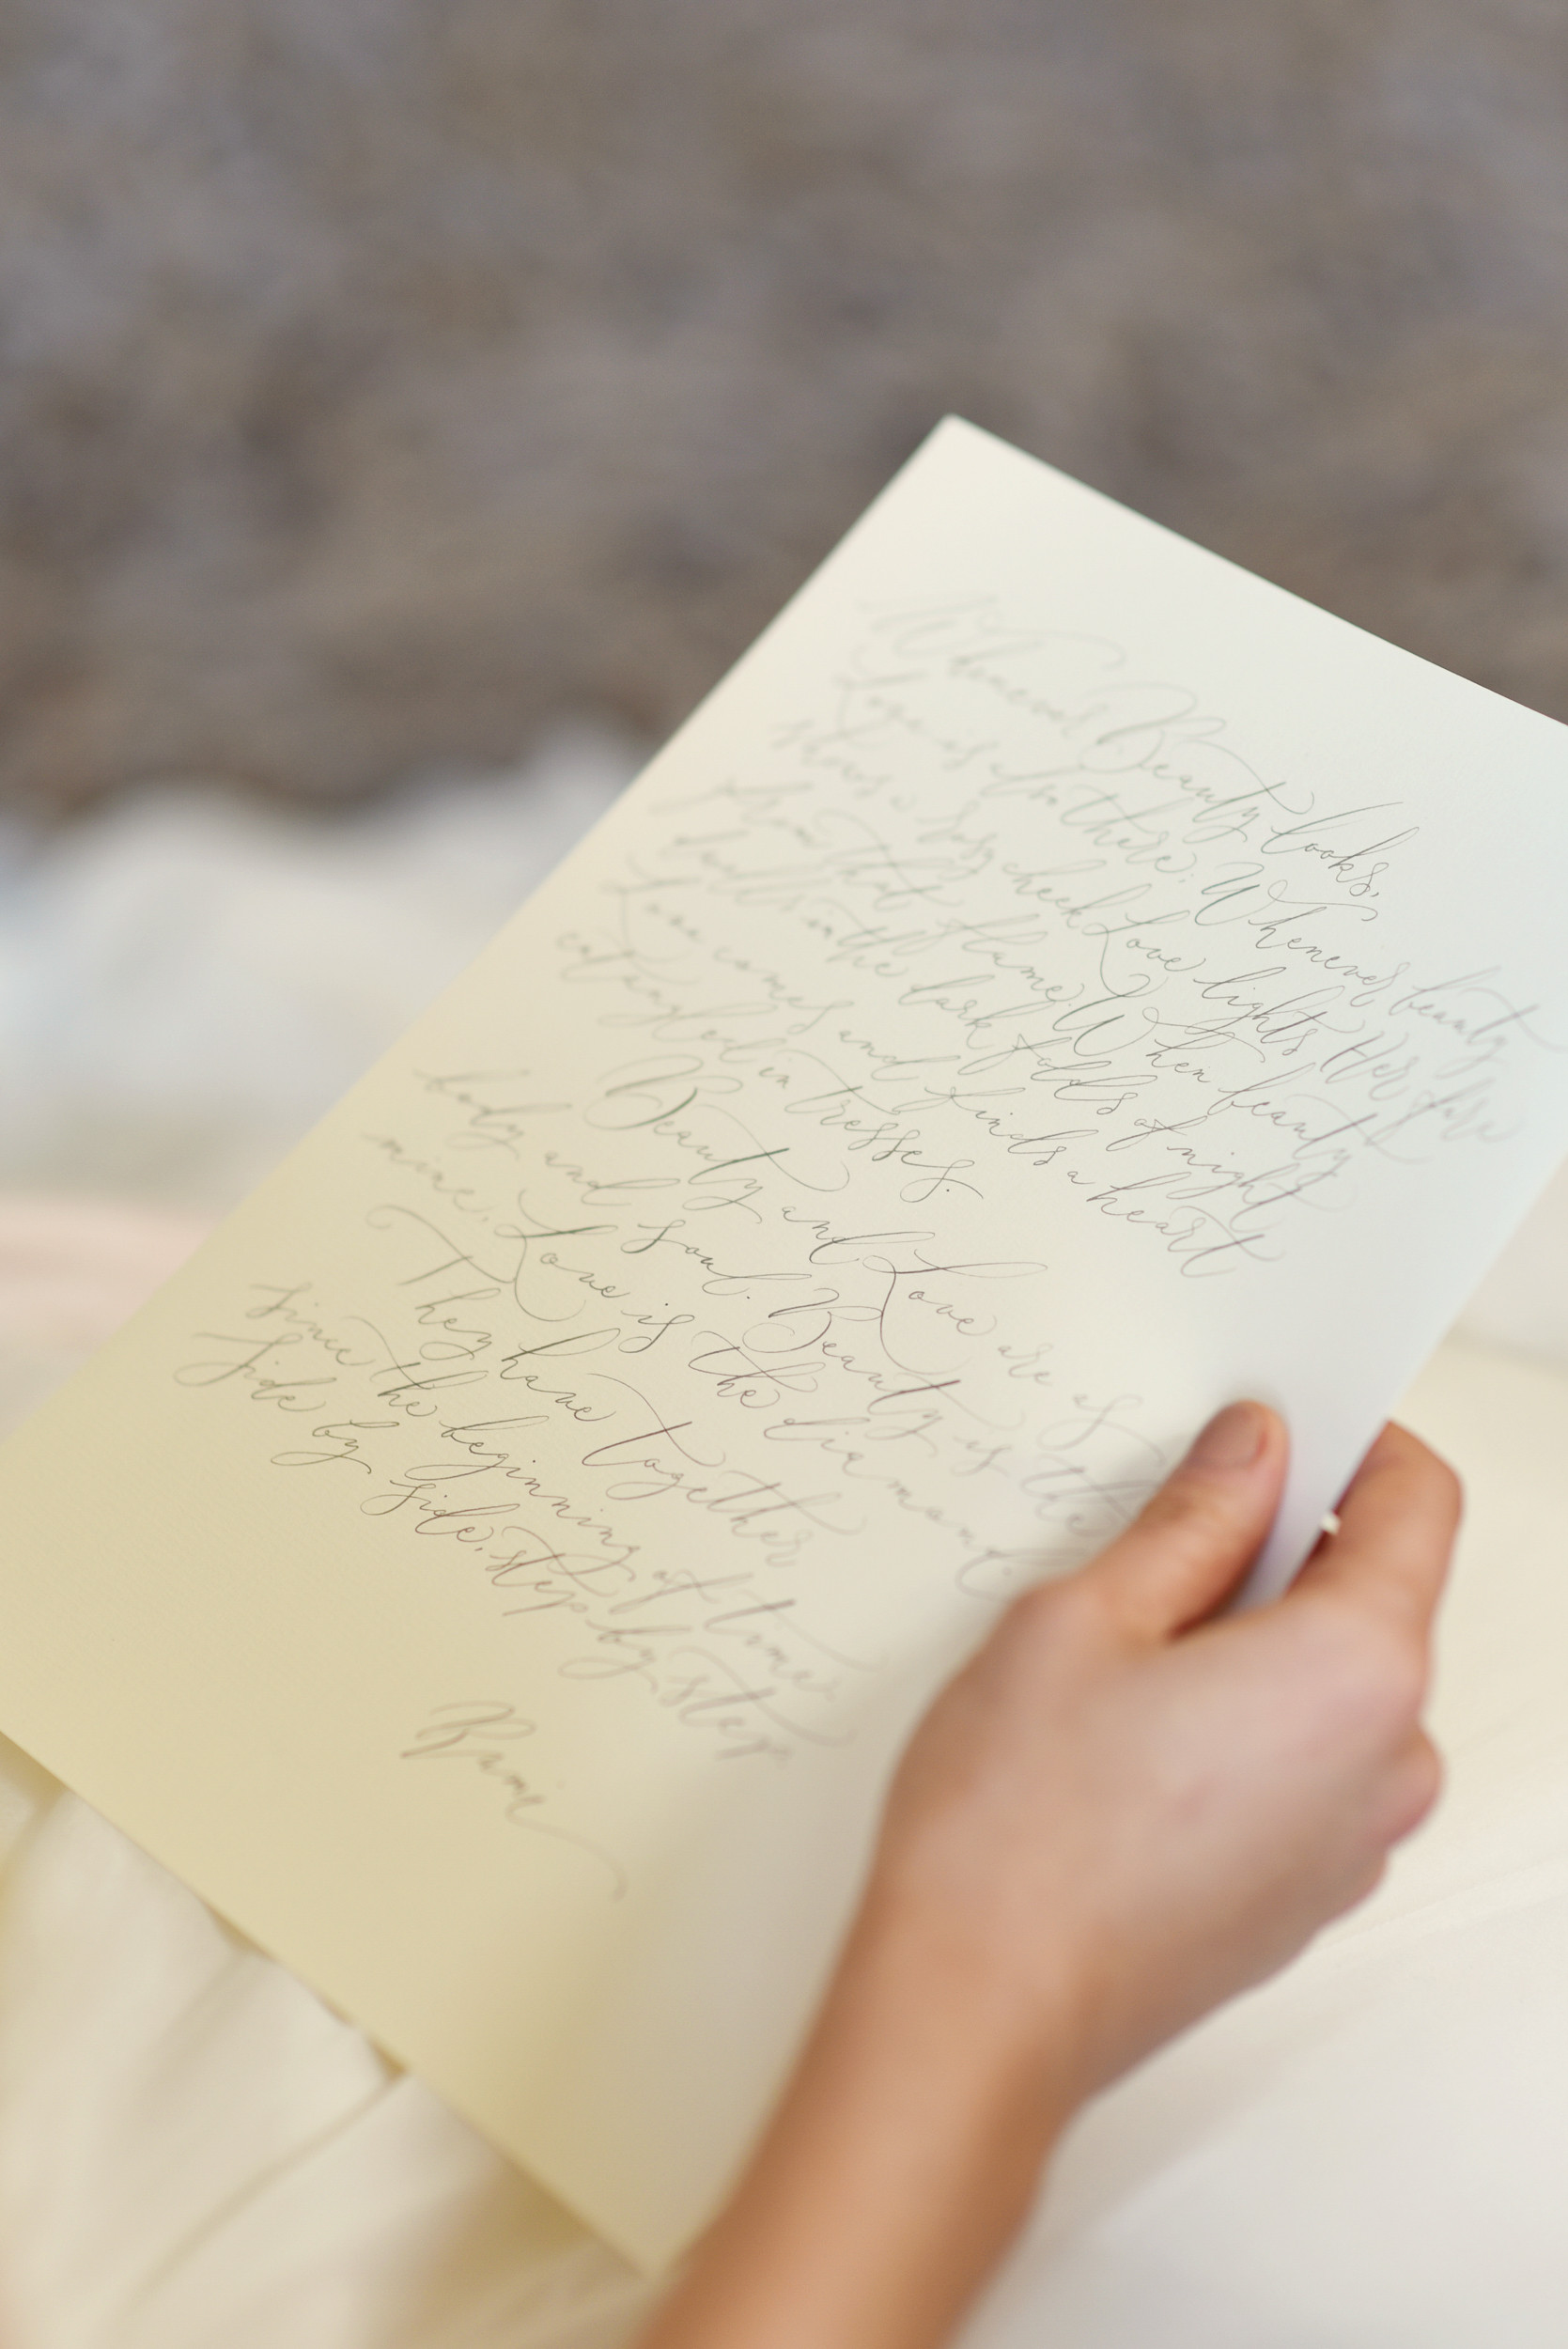 Whenever Beauty looks,
Love is also there; Whenever beauty
shows a rosy cheek Love lights Her fire
from that flame. When beauty
dwells in the dark folds of night
Love comes and finds a heart
entangled in tresses.
Beauty and Love are as
body and soul. Beauty is the
mine, Love is the diamond.
They have together
since the beginning of time
Side by side, step by step
Rumi